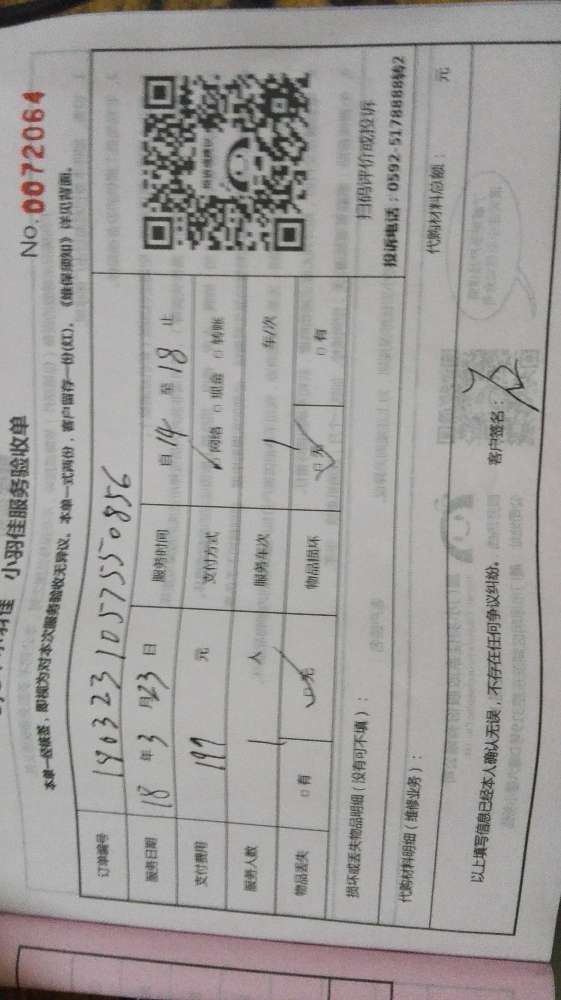 小羽佳 小羽佳服务验收单
No. 0072064
本单一经核签，即视为对本次服务验收无异议。本单一式两份，客户留存一份(红)。《维保须知》详见背面。
订单编号 1903231057550856
服务日期 18 年 3 月 23 日 服务时间 自 14 至 18 止
支付费用 199 元 支付方式 ☑ 网络 □ 现金 □ 转账
服务人数 1 人 服务车次 1 车/次
物品丢失 □ 有 ☑ 无 物品损坏 ☑ 无 □ 有
扫码评价或投诉
投诉电话：0592-5178888转2
损坏或丢失物品明细（没有可不填）：
代购材料明细（维修业务）： 代购材料总额： 元
以上填写信息已经本人确认无误，不存在任何争议纠纷。 客户签名：